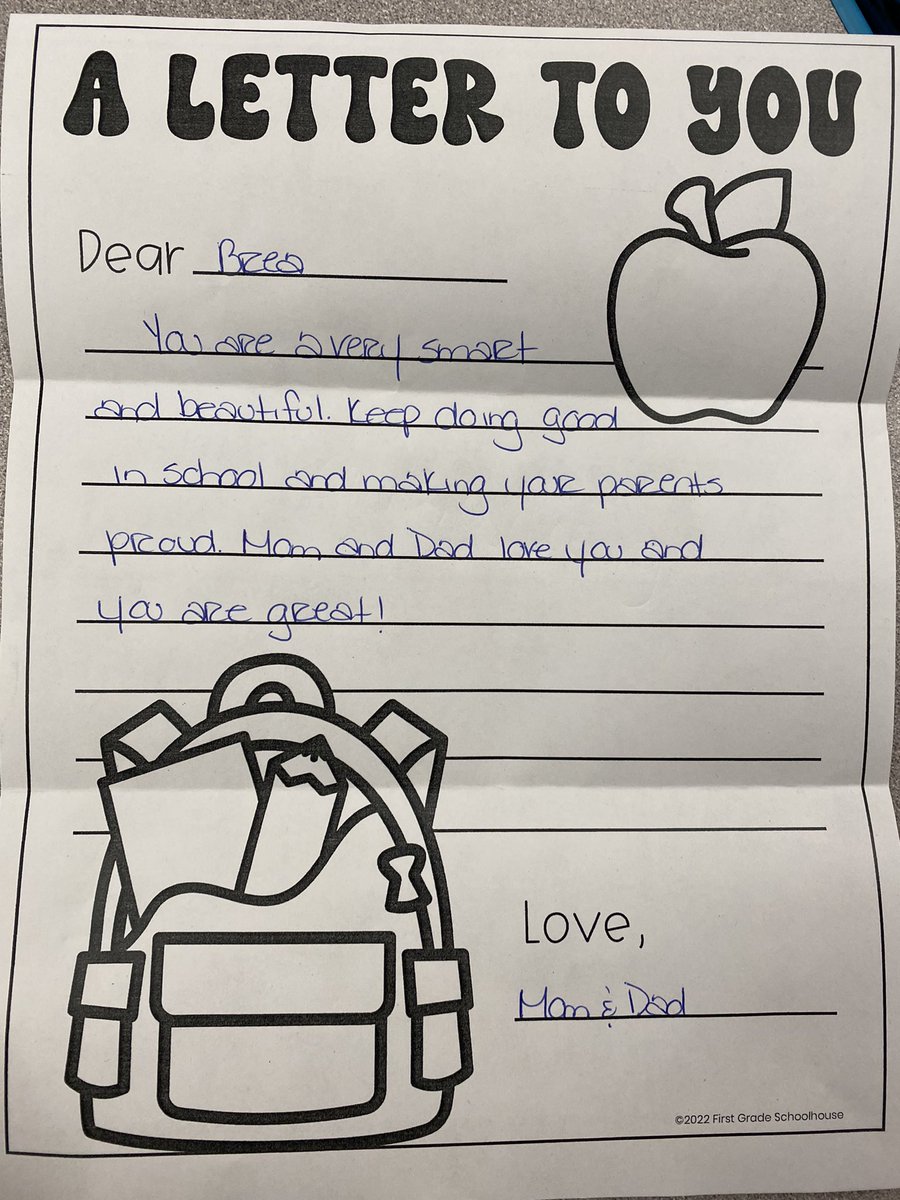 A LETTER TO YOU
Dear Brea
You are a very smart
and beautiful. Keep doing good
in school and making your parents
proud. Mom and Dad love you and
you are great!
Love,
Mom & Dad
©2022 First Grade Schoolhouse